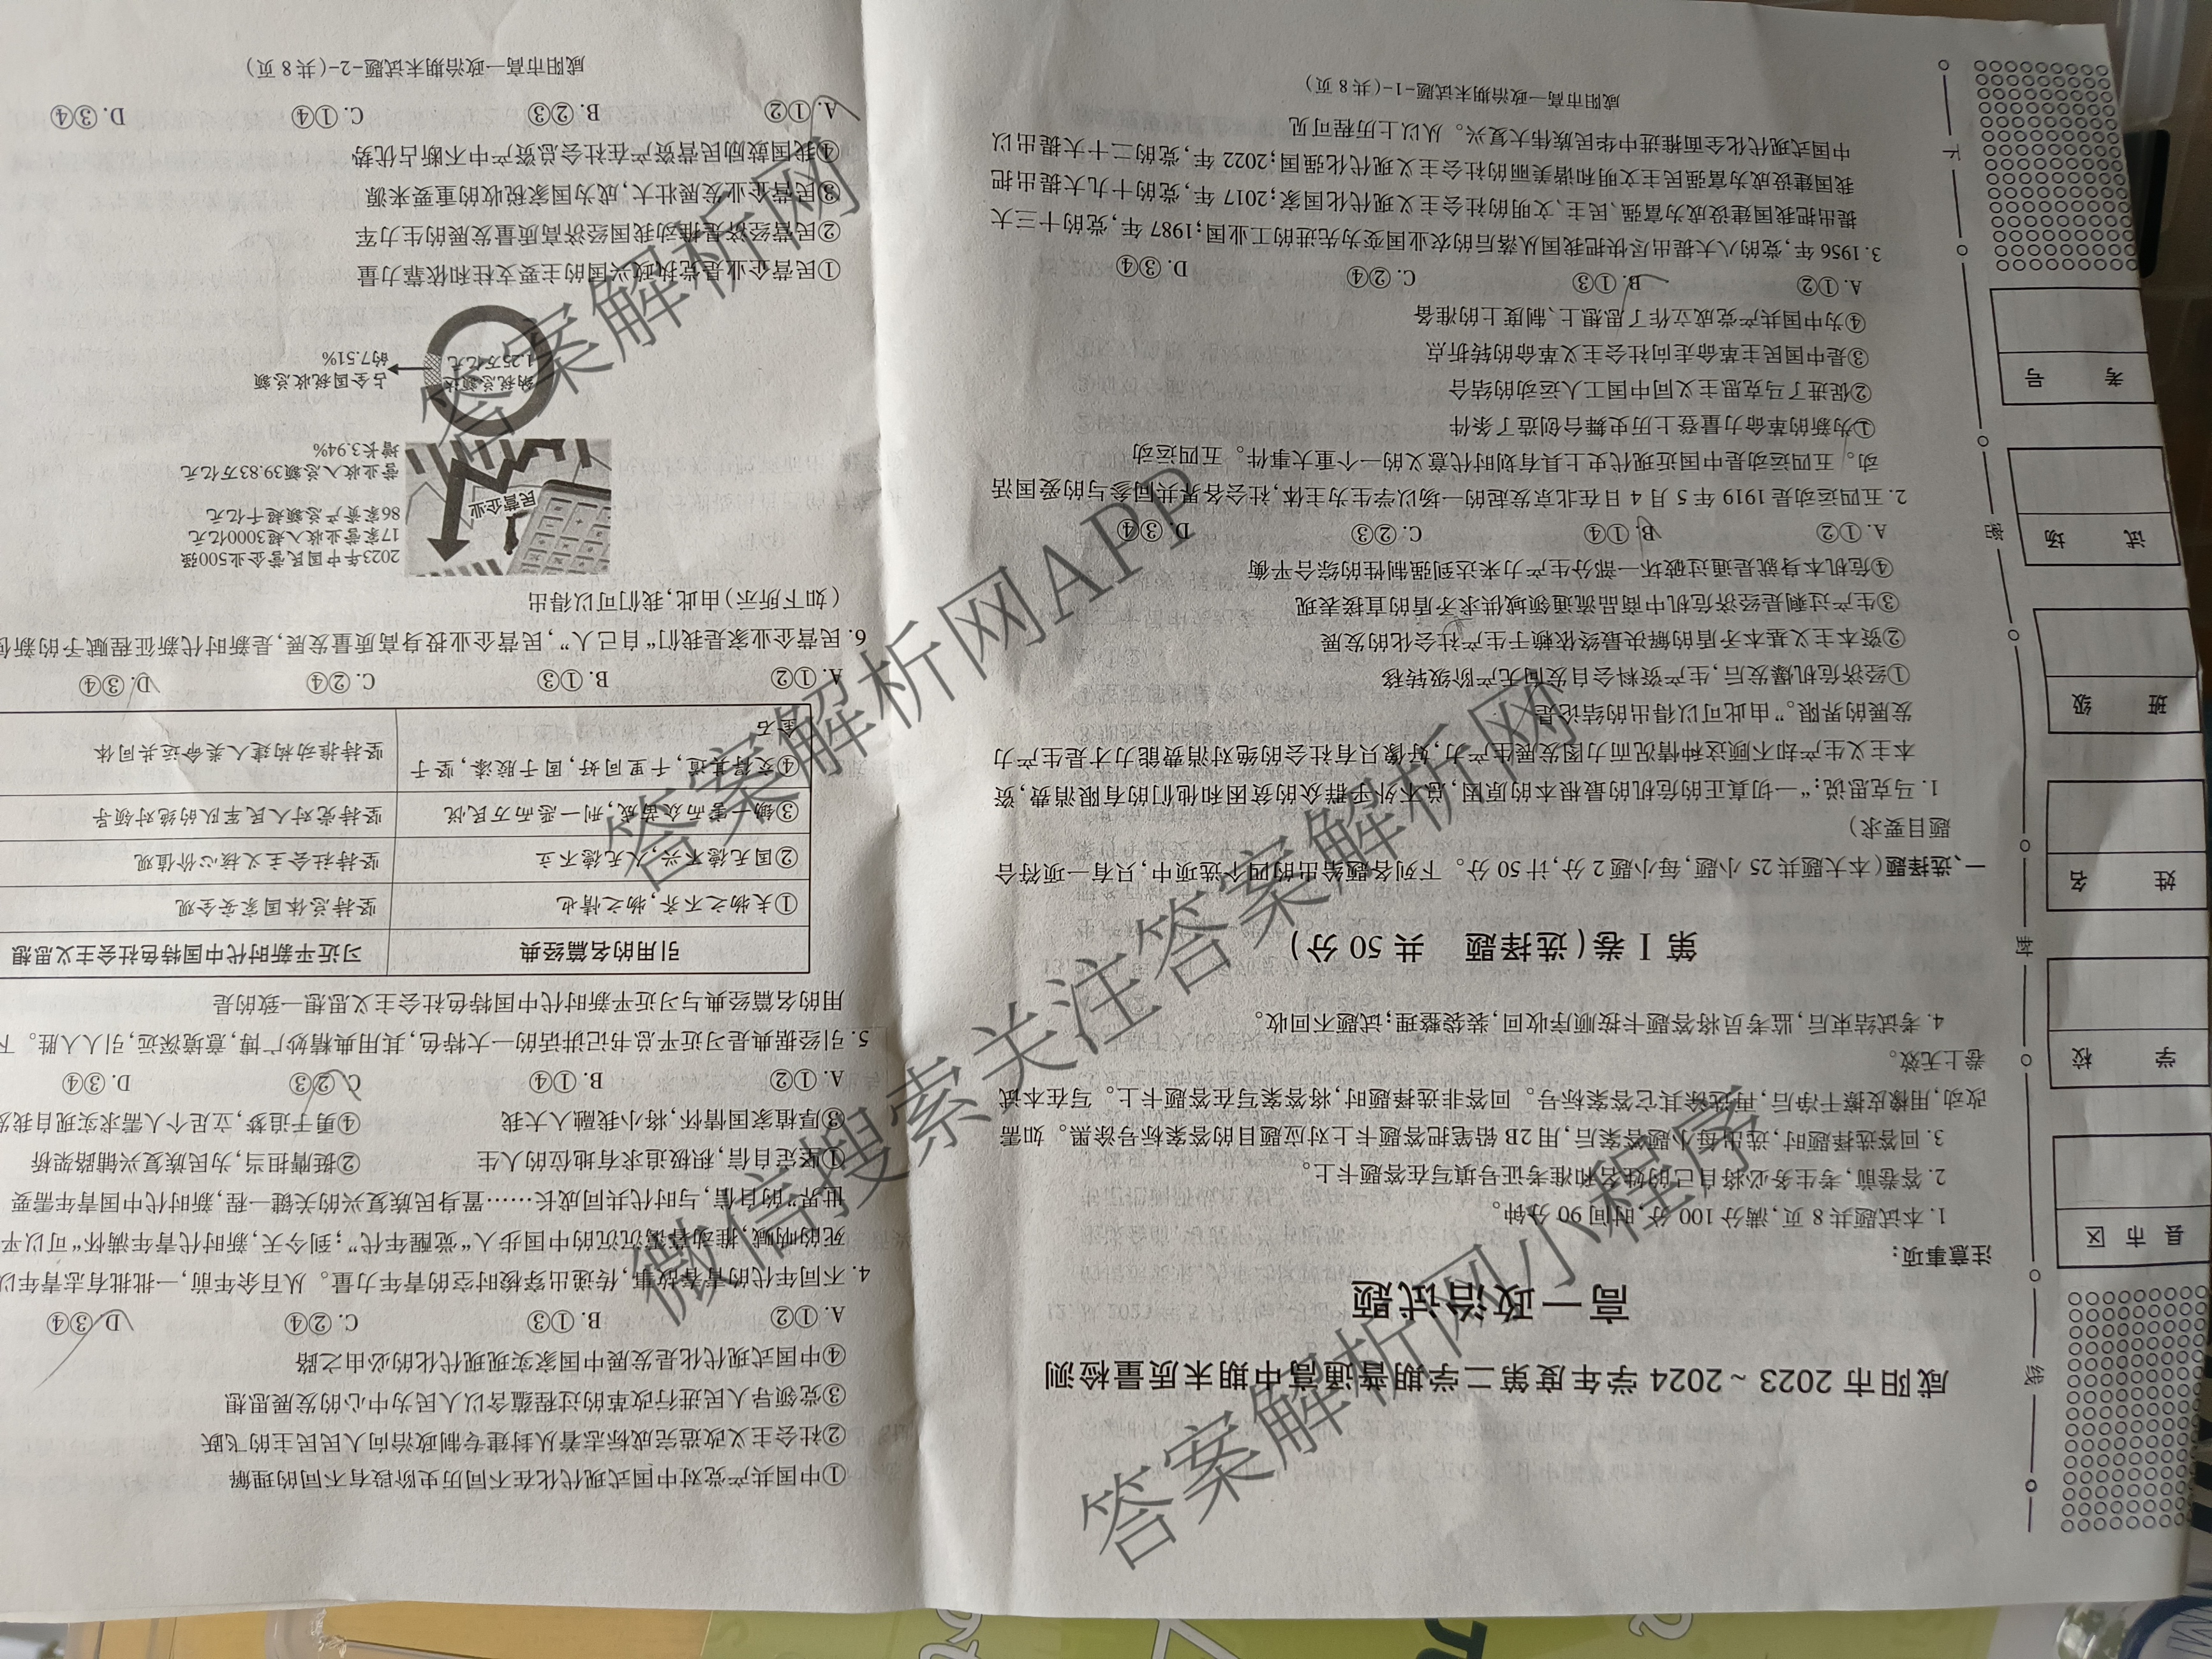 咸阳市 2023～2024 学年度第二学期普通高中期末质量检测
高一政治试题
注意事项:
1. 本试题共 8 页,满分 100 分,时间 90 分钟。
2. 答卷前,考生务必将自己的姓名和准考证号填写在答题卡上。
3. 回答选择题时,选出每小题答案后,用 2B 铅笔把答题卡上对应题目的答案标号涂黑。如需
改动,用橡皮擦干净后,再选涂其它答案标号。回答非选择题时,将答案写在答题卡上。写在本试
卷上无效。
4. 考试结束后,监考员将答题卡按顺序收回,装袋整理;试题不回收。
第 I 卷(选择题 共 50 分)
一、选择题(本大题共 25 小题,每小题 2 分,计 50 分。下列各题给出的四个选项中,只有一项符合
题目要求)
1. 马克思说:“一切真正的危机的最根本的原因,总不外乎群众的贫困和他们的有限消费,资
本主义生产却不顾这种情况而力图发展生产力,好像只有社会的绝对消费能力才是生产力
发展的界限。”由此可以得出的结论是
①经济危机爆发后,生产资料会自发向无产阶级转移
②资本主义基本矛盾的解决最终依赖于生产社会化的发展
③生产过剩是经济危机中商品流通领域供求矛盾的直接表现
④危机本身就是通过破坏一部分生产力来达到强制性的综合平衡
A. ①② B. ①④ C. ②③ D. ③④
2. 五四运动是 1919 年 5 月 4 日在北京发起的一场以学生为主体,社会各界共同参与的爱国活
动。五四运动是中国近现代史上具有划时代意义的一个重大事件。五四运动
①为新的革命力量登上历史舞台创造了条件
②促进了马克思主义同中国工人运动的结合
③是中国民主革命走向社会主义革命的转折点
④为中国共产党成立作了思想上、制度上的准备
A. ①② B. ①③ C. ②④ D. ③④
3. 1956 年,党的八大提出尽快把我国从落后的农业国变为先进的工业国;1987 年,党的十三大
提出把我国建设成为富强、民主、文明的社会主义现代化国家;2017 年,党的十九大提出把
我国建设成为富强民主文明和谐美丽的社会主义现代化强国;2022 年,党的二十大提出以
中国式现代化全面推进中华民族伟大复兴。从以上历程可见
咸阳市高一政治期末试题-1-(共 8 页)
①中国共产党对中国式现代化在不同历史阶段有不同的理解
②社会主义改造完成标志着从封建专制政治向人民民主的飞跃
③党领导人民进行改革的过程蕴含以人民为中心的发展思想
④中国式现代化是发展中国家实现现代化的必由之路
A. ①② B. ①③ C. ②④ D. ③④
4. 不同年代的青春故事,传递出穿梭时空的青年力量。从百余年前,一批批有志青年以
死的呐喊,推动着沉沉的中国步入“觉醒年代”;到今天,新时代青年满怀“可以平
世界”的自信,与时代共同成长……置身民族复兴的关键一程,新时代中国青年需要
①坚定自信,积极追求有地位的人生 ②挺膺担当,为民族复兴铺路架桥
③厚植家国情怀,将小我融入大我 ④勇于追梦,立足个人需求实现自我发
A. ①② B. ①④ C. ②③ D. ③④
5. 引经据典是习近平总书记讲话的一大特色,其用典精妙广博,意境深远,引人入胜。下
用的名篇经典与习近平新时代中国特色社会主义思想一致的是
引用的名篇经典 习近平新时代中国特色社会主义思想
①夫物之不齐,物之情也 坚持总体国家安全观
②国无德不兴,人无德不立 坚持社会主义核心价值观
③锄一害而众苗成,刑一恶而万民悦 坚持党对人民军队的绝对领导
④交得其道,千里同好,固于胶漆,坚于 坚持推动构建人类命运共同体
金石
A. ①② B. ①③ C. ②④ D. ③④
6. 民营企业家是我们“自己人”,民营企业投身高质量发展,是新时代新征程赋予的新使
(如下所示)由此,我们可以得出
2023年中国民营企业500强
17家营业收入超3000亿元
86家资产总额超千亿元
营业收入总额39.83万亿元
增长3.94%
民营企业
纳税总额达
1.25万亿元
占全国税收总额
的7.51%
①民营企业是党执政兴国的主要支柱和依靠力量
②民营经济是推动我国经济高质量发展的生力军
③民营企业发展壮大,成为国家税收的重要来源
④我国鼓励民营资产在社会总资产中不断占优势
A. ①② B. ②③ C. ①④ D. ③④
咸阳市高一政治期末试题-2-(共 8 页)
县市区
学校
姓名
班级
试场
考号
线
封
密
卡
答案解析网
答案解析网APP
微信搜索关注答案解析网
答案解析网小程序